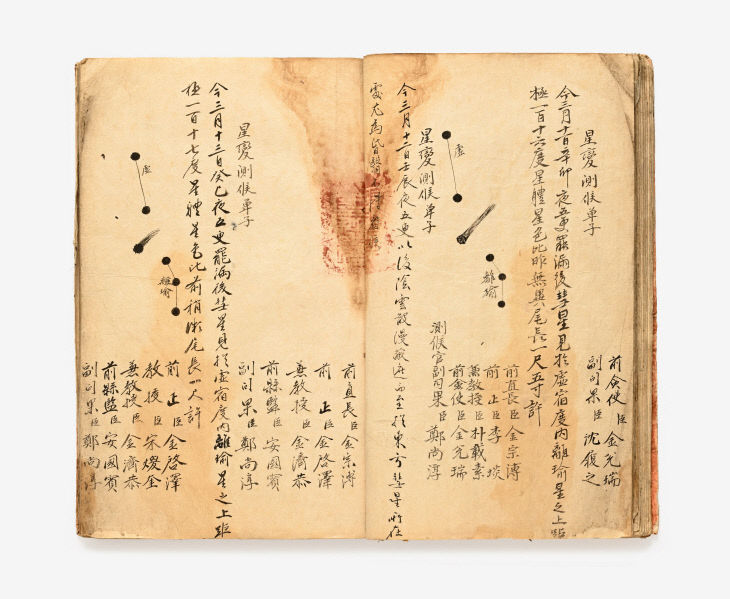 前僉使臣金允瑞
副司果臣沈履之
星變測候單子
今三月十一日辛卯夜五更罷漏後彗星見於虛宿度內離瑜星之上距
極一百十六度星體星色比昨無異尾長一尺五寸許
虛
離瑜
前直長臣金宗溥
前正臣李埮
兼教授臣朴載素
前僉使臣金允瑞
測候官副司果臣鄭尚淳
星變測候單子
今三月十二日壬辰夜五更以後陰雲散漫
東方彗星所在
處尤爲昏翳
前直長臣金宗溥
前正臣金啓澤
兼教授臣金濟恭
前縣監臣安國賓
副司果臣鄭尚淳
星變測候單子
今三月十三日癸巳夜五更罷漏後彗星見於虛宿度內離瑜星之上距
極一百十七度星體星色比前稍微尾長一尺許
虛
離瑜
前正臣金啓澤
教授臣宋
兼教授臣金濟恭
前縣監臣安國賓
副司果臣鄭尚淳